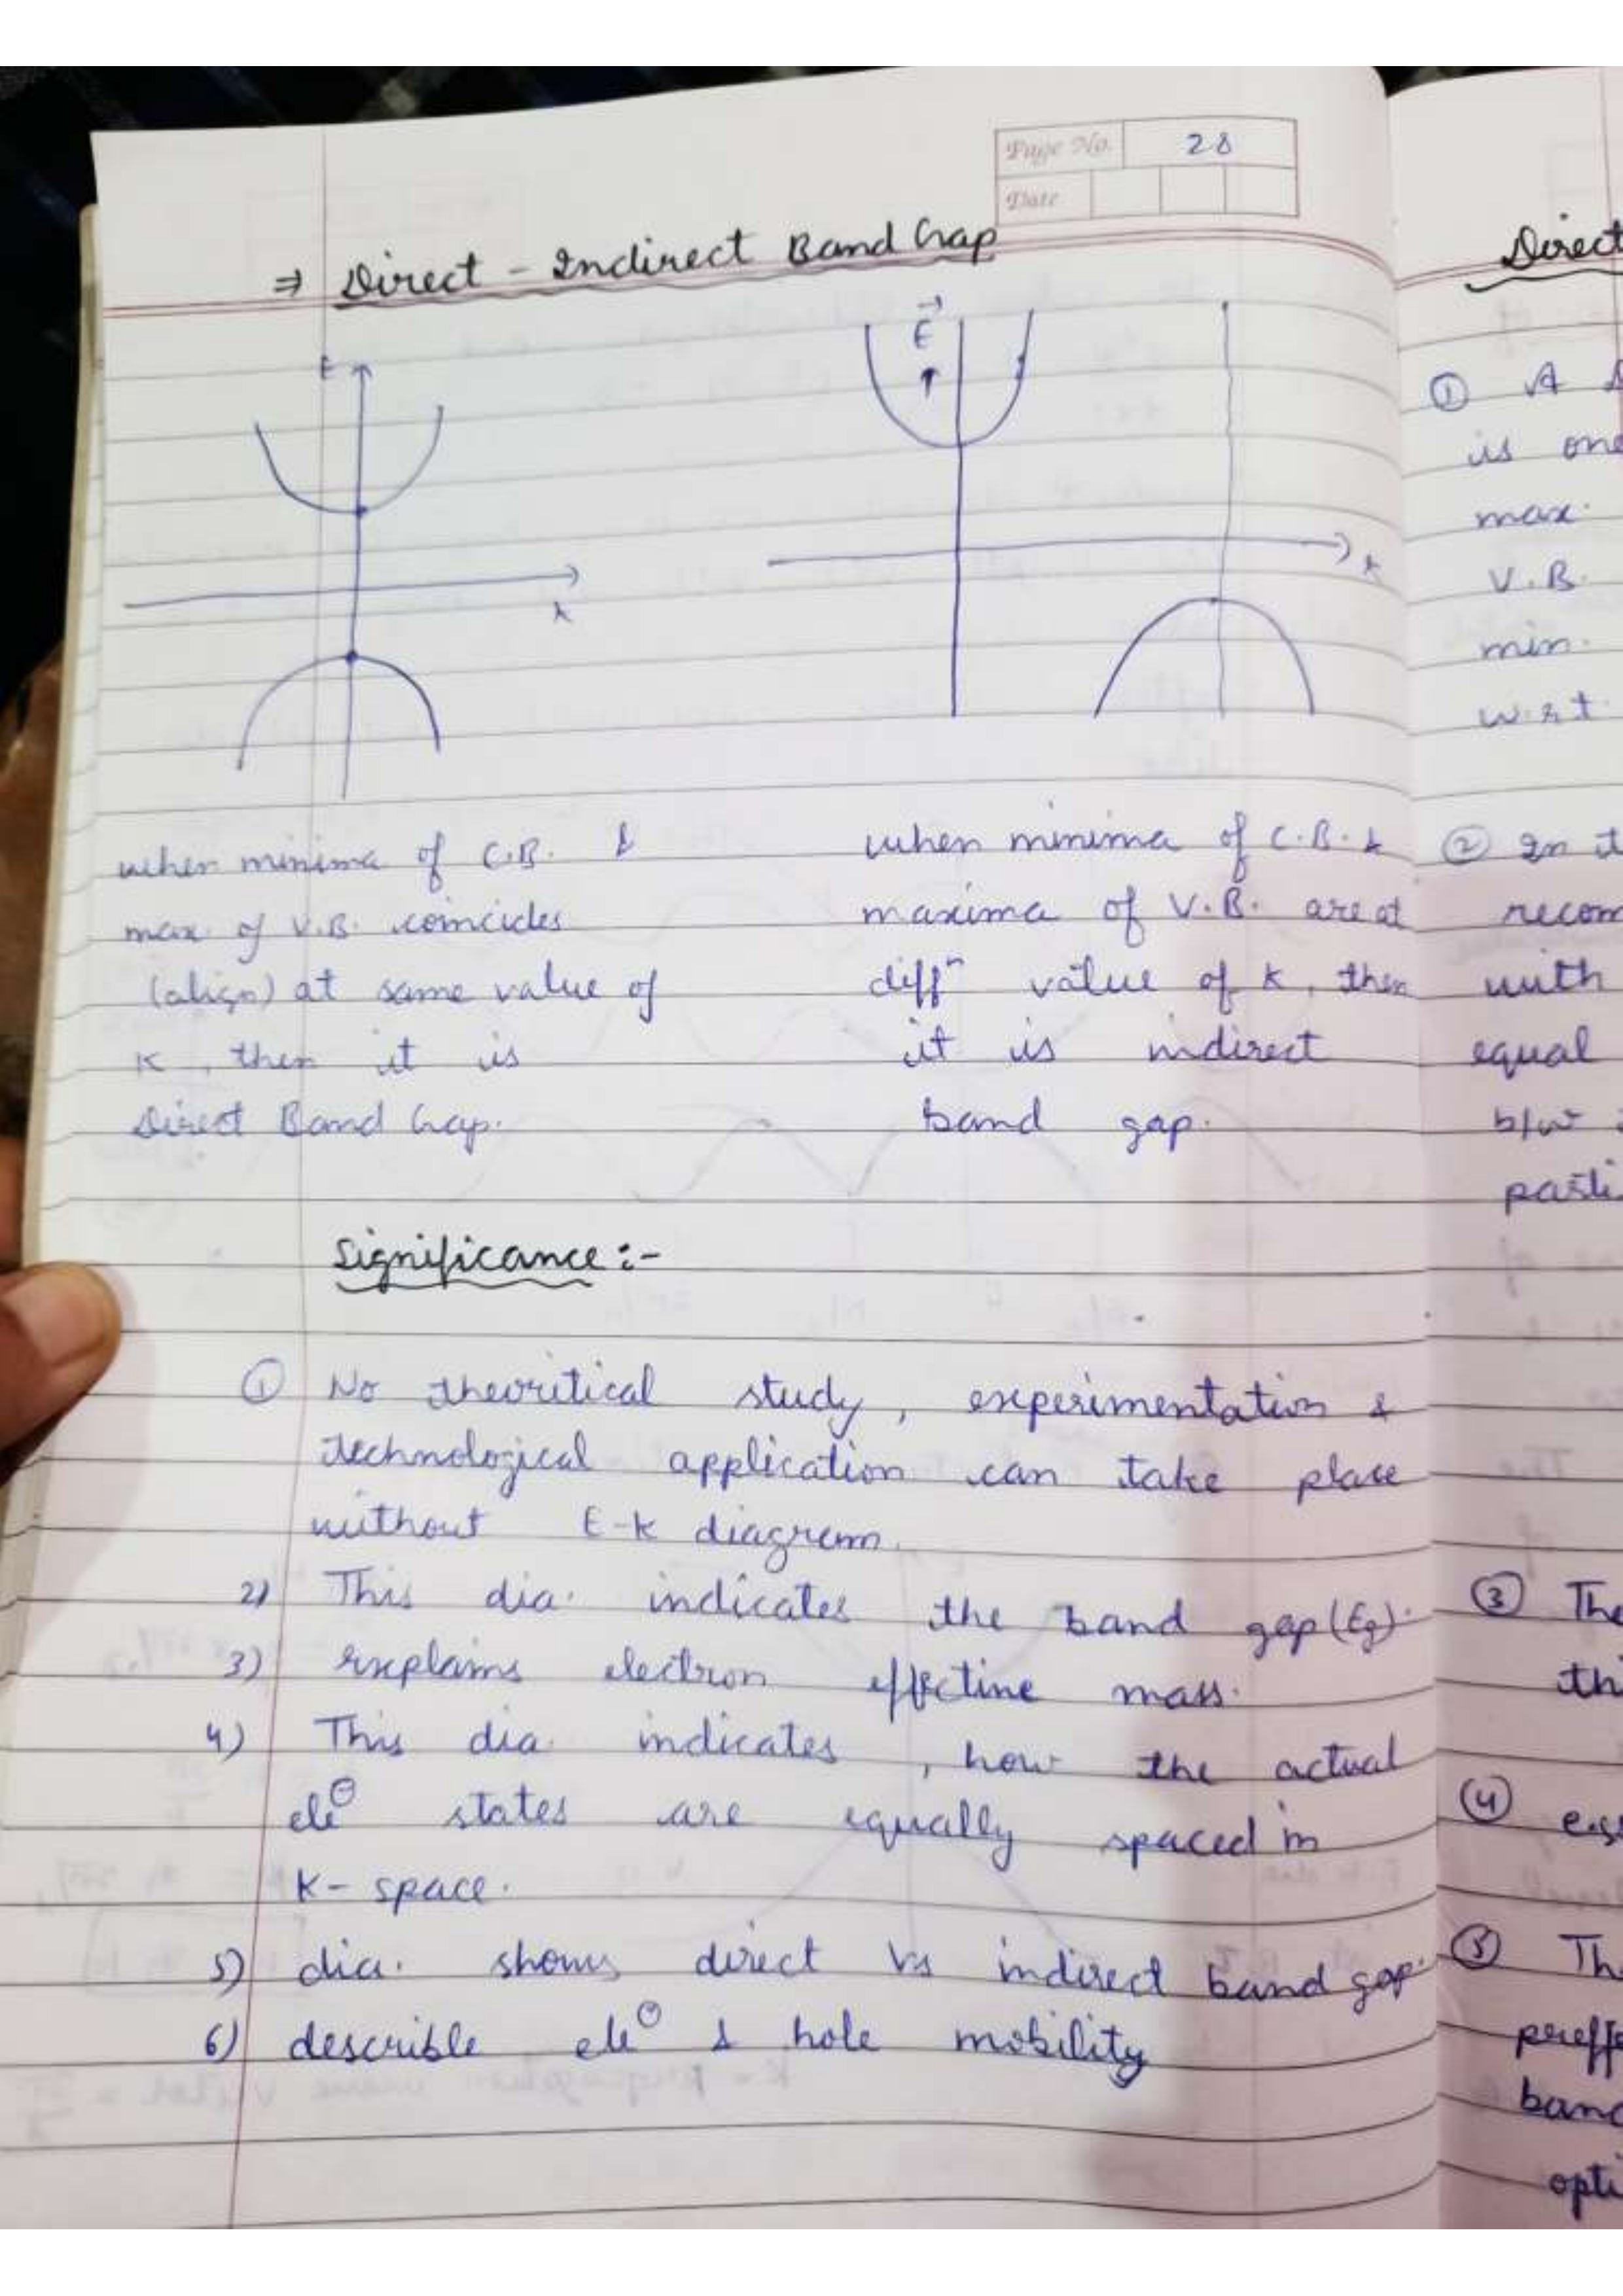 Page No. 28
Date
⇒ Direct - Indirect Band Gap
E
K
E
K
when minima of C.B. &
max of V.B. coincides
(align) at same value of
K, then it is
Direct Band Gap.
when minima of C.B. &
maxima of V.B. are at
diffⁿ value of K, then
it is indirect
band gap.
Significance :-
① No theoritical study, experimentation &
technological application can take place
without E-K diagram.
2) This dia. indicates the band gap (Eg).
3) explains electron effective mass.
4) This dia. indicates, how the actual
ele⊖ states are equally spaced in
K-space.
5) dia. shows direct vs indirect band gap.
6) describle ele⊖ & hole mobility
Direct
① A
is one
max.
V.B.
min.
w.r.t.
② In
recom
with
equal
b/w
parti
③ The
④ e.g
⑤ Th
preffe
band
opti